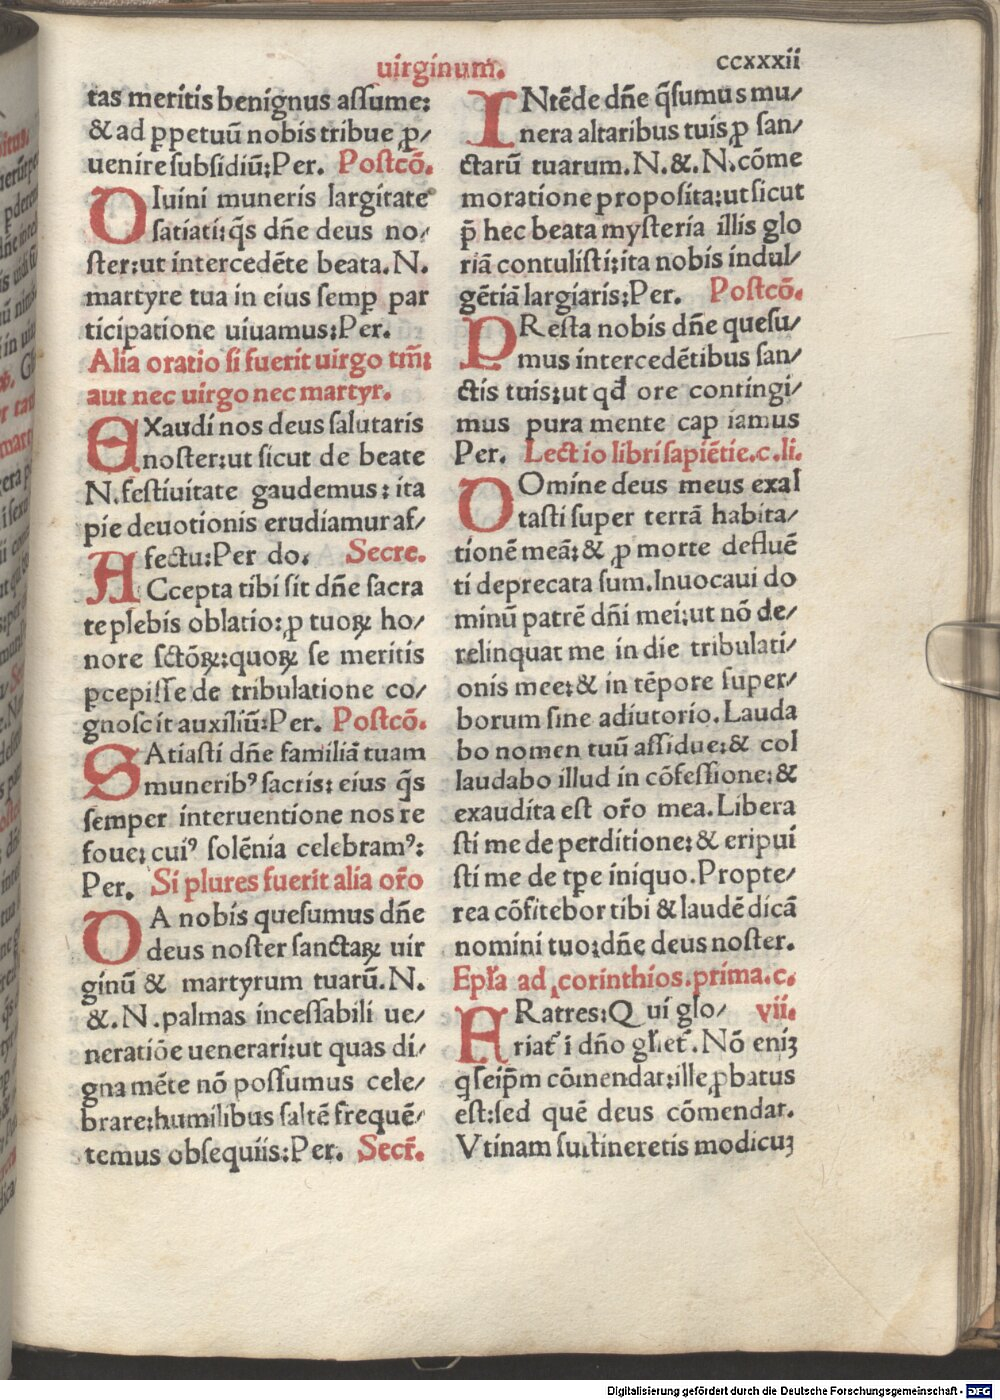 uirginum.
ccxxxii
tas meritis benignus aſſume:
& ad ꝑpetuū nobis tribue ꝓ/
uenire ſubſidiū:Per. Poſtcō.
DIuini muneris largitate
ſatiati:q̄s dñe deus no/
ſter:ut intercedēte beata.N.
martyre tua in eius ſemꝑ par
ticipatione uiuamus:Per.
Alia oratio ſi fuerit uirgo tm̄:
aut nec uirgo nec martyr.
EXaudi nos deus ſalutaris
noſter:ut ſicut de beate
N.feſtiuitate gaudemus: ita
pie deuotionis erudiamur af/
fectu:Per do. Secre.
ACcepta tibi ſit dñe ſacra
te plebis oblatio:ꝓ tuoꝝ ho/
nore ſctōꝝ:quoꝝ ſe meritis
ꝑcepiſſe de tribulatione co/
gnoſcit auxiliū:Per. Poſtcō.
SAtiaſti dñe familiā tuam
munerib⁹ ſacris: eius q̄s
ſemper interuentione nos re
foue: cui⁹ ſolēnia celebram⁹:
Per. Si plures fuerit alia or̄o
DA nobis queſumus dñe
deus noſter ſanctaꝝ uir
ginū & martyrum tuarū.N.
&.N.palmas inceſſabili ue/
neratiōe uenerari:ut quas di/
gna mēte nō poſſumus cele/
brare:humilibus ſaltē frequē/
temus obſequiis:Per. Secr̄.
INtēde dñe q̄ſumus mu/
nera altaribus tuis ꝓ ſan/
ctarū tuarum.N.&.N.cōme
moratione propoſita:ut ſicut
p̄ hec beata myſteria illis glo
riā contuliſti:ita nobis indul/
gētiā largiaris:Per. Poſtcō.
PReſta nobis dñe queſu/
mus intercedētibus ſan/
ctis tuis:ut qđ ore contingi/
mus pura mente cap iamus
Per. Lectio libri ſapiētie.c.li.
DOmine deus meus exal
taſti ſuper terrā habita/
tionē meā:& ꝓ morte defluē
ti deprecata ſum.Inuocaui do
minū patrē dñi mei:ut nō de/
relinquat me in die tribulati/
onis mee:& in tēpore ſuper/
borum ſine adiutorio.Lauda
bo nomen tuū aſſidue:& col
laudabo illud in cōfeſſione:&
exaudita eſt or̄o mea.Libera
ſti me de perditione:& eripui
ſti me de tꝑe iniquo.Propte/
rea cōfitebor tibi & laudē dicā
nomini tuo:dñe deus noſter.
Epľa ad corinthios.prima.c.
vii.
FRatres:Q ui glo/
riat᷑ i dño gľiet᷑.Nō eniꝫ
q ſeip̄m cōmendat:ille ꝓbatus
eſt:ſed quē deus cōmendat.
Vtinam ſuſtineretis modicuꝫ
Digitalisierung gefördert durch die Deutsche Forschungsgemeinschaft - DFG